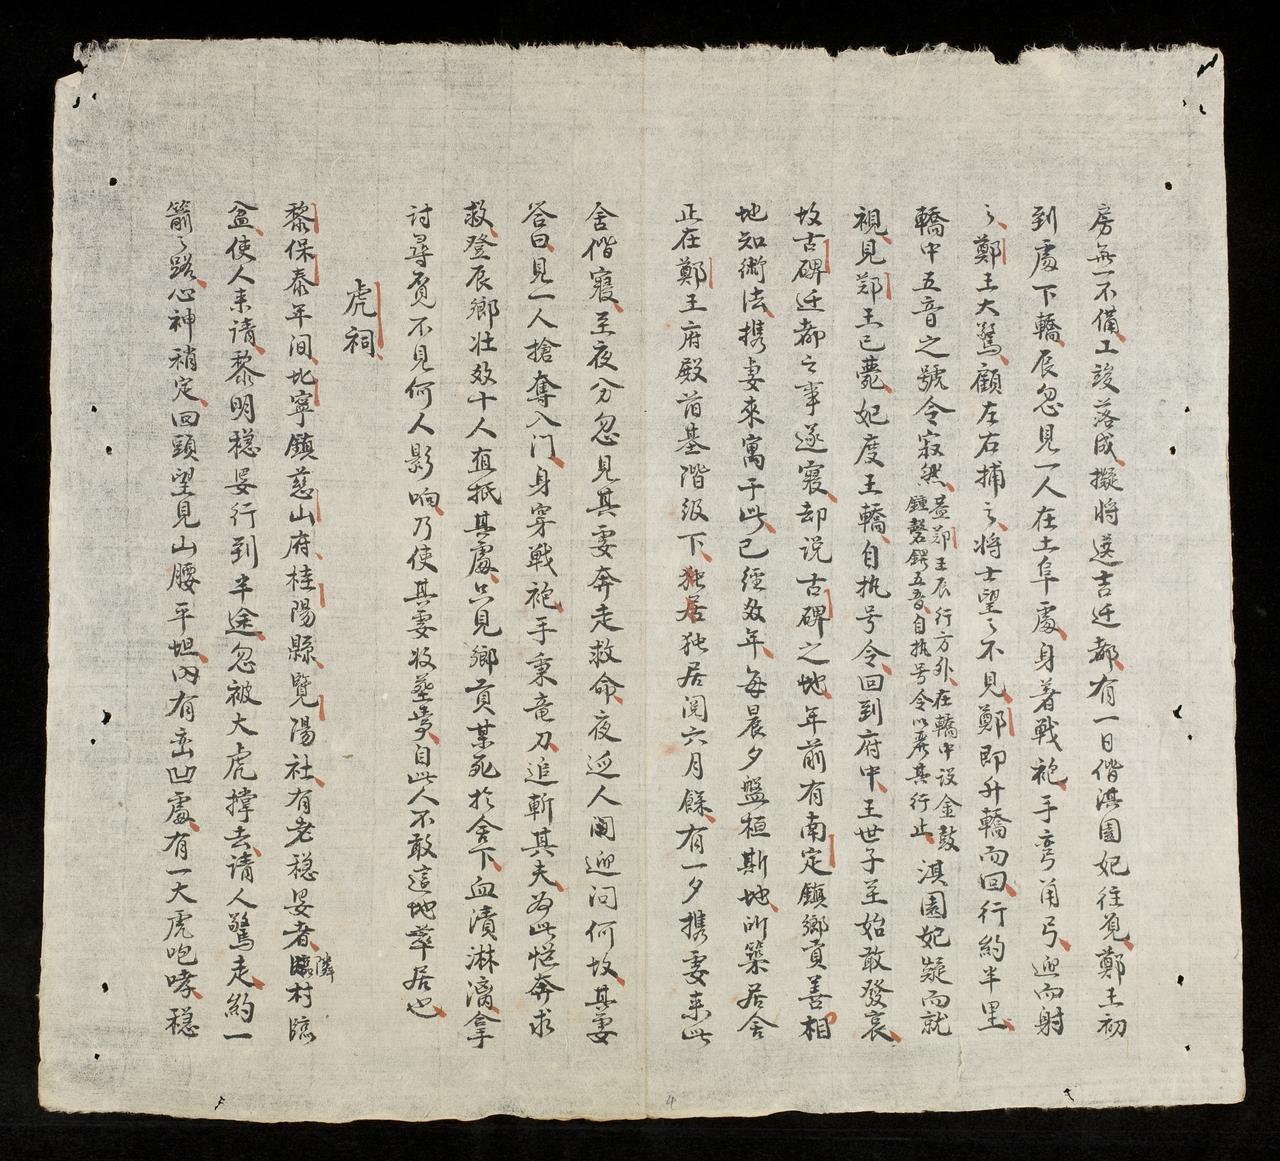 房無一不備工竣落成擬將選吉迁都有一日偕淇園妃往覓鄭王初
到處下轎辰忽見一人在土阜處身著戰袍手彎角弓迎而射
之鄭王大驚顧左右捕之將士望之不見鄭即升轎而回行約半里
轎中五音之號令寂然
葢鄭王辰行方外在轎中设金鼓
鍾磬鐸五音自执号令以齐其行止
淇園妃疑而就
視見鄭王已薨妃度王轎自执号令回到府中王世子至始敢發哀
故古碑迁都之事遂寢却说古碑之地年前有南定鎮鄉貢善相
地知術法携妻來寓于此已經数年每晨夕盤桓斯地所築居舍
正在鄭王府殿前基階级下独居独居阅六月餘有一夕携妻来此
舍偕寢至夜分忽見其妻奔走救命夜逅人闻迎问何故其妻
答曰見一人搶奪入门身穿戰袍手秉竜刀追斬其夫為此慌奔求
救登辰鄉壮数十人直抵其處只見鄉貢某死於舍下血漬淋漓拿
讨尋覓不見何人影响乃使其妻收塟焉自此人不敢這地莘居也
虎祠
黎保泰年间北寧鎮慈山府桂陽縣覽陽社有老稳晏者隣村臨
盆使人来请黎明稳晏行到半途忽被大虎撑去请人驚走約一
箭之路心神稍定回頭望見山腰平坦內有峦凹處有一大虎咆哮稳